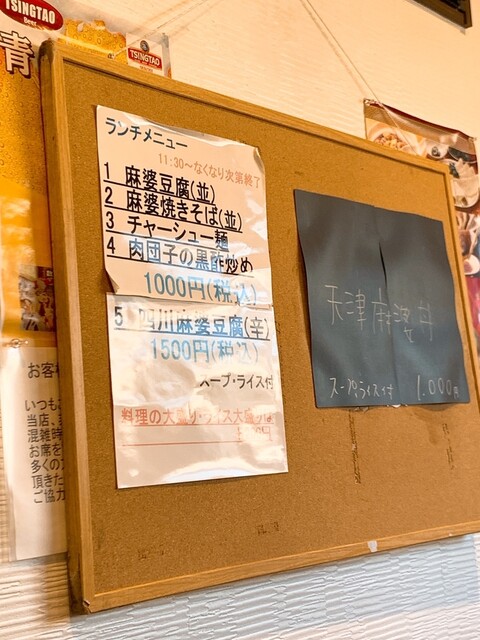 TSINGTAO
Beer
TSINGTAO
青
ランチメニュー
11:30～なくなり次第終了
1 麻婆豆腐(並)
2 麻婆焼きそば(並)
3 チャーシュー麺
4 肉団子の黒酢炒め
1000円(税込)
5 四川麻婆豆腐(辛)
1500円(税込)
スープ・ライス付
料理の大盛り・ライス大盛りは
天津麻婆丼
スープ、ライス付 1.000円
お客様
いつも
当店、
混雑時
お席を
多くの
頂きた
ご協力